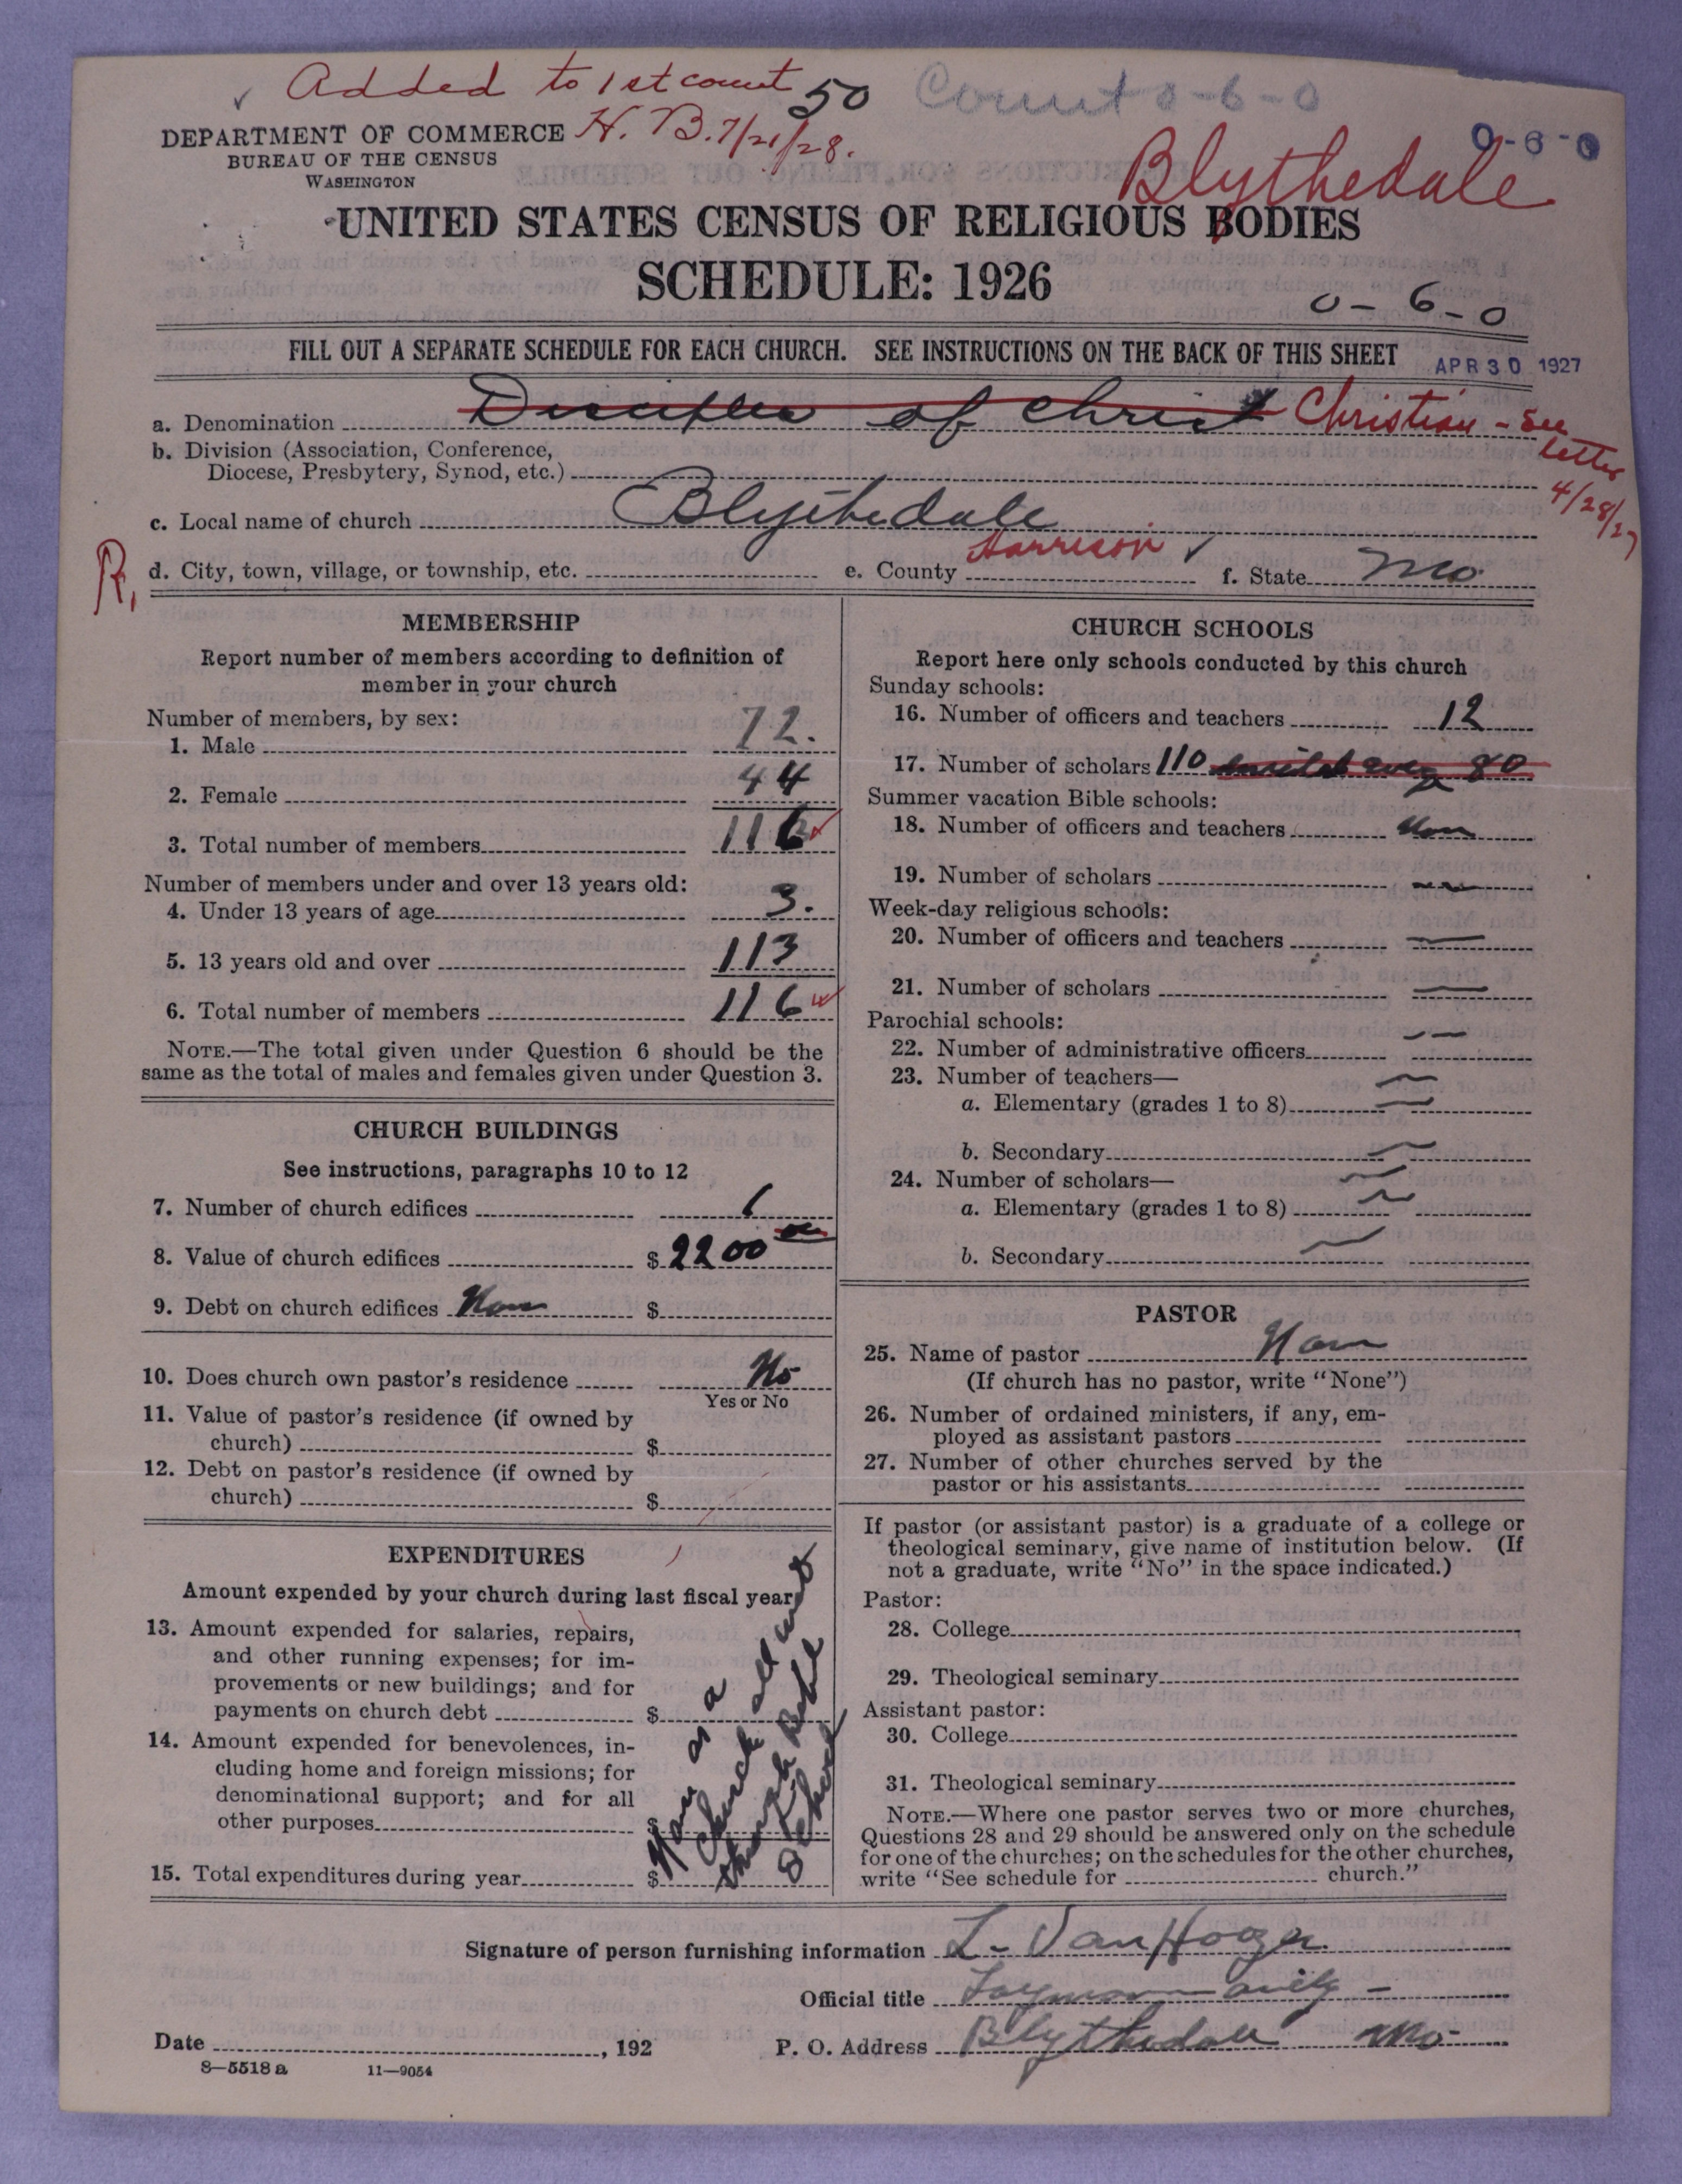 Added to 1st count 50 Count 0-6-0
H. B. 7/21/28.
DEPARTMENT OF COMMERCE
BUREAU OF THE CENSUS
WASHINGTON
0-6-0
Blythedale
UNITED STATES CENSUS OF RELIGIOUS BODIES
SCHEDULE: 1926
0-6-0
FILL OUT A SEPARATE SCHEDULE FOR EACH CHURCH. SEE INSTRUCTIONS ON THE BACK OF THIS SHEET
APR 30 1927
a. Denomination Disciples of Christ Christian - See
letter
4/28/27
b. Division (Association, Conference,
Diocese, Presbytery, Synod, etc.)
c. Local name of church Blythedale
R,
d. City, town, village, or township, etc. e. County Harrison f. State Mo.
MEMBERSHIP
Report number of members according to definition of
member in your church
Number of members, by sex:
1. Male 72.
2. Female 44
3. Total number of members 116
Number of members under and over 13 years old:
4. Under 13 years of age 3.
5. 13 years old and over 113
6. Total number of members 116
NOTE.—The total given under Question 6 should be the
same as the total of males and females given under Question 3.
CHURCH BUILDINGS
See instructions, paragraphs 10 to 12
7. Number of church edifices 1
8. Value of church edifices $ 2200
9. Debt on church edifices None $
10. Does church own pastor's residence No
Yes or No
11. Value of pastor's residence (if owned by
church) $
12. Debt on pastor's residence (if owned by
church) $
EXPENDITURES
Amount expended by your church during last fiscal year
13. Amount expended for salaries, repairs,
and other running expenses; for im-
provements or new buildings; and for
payments on church debt $
14. Amount expended for benevolences, in-
cluding home and foreign missions; for
denominational support; and for all
other purposes $
15. Total expenditures during year $
None as a
church all went
through Bible
School
CHURCH SCHOOLS
Report here only schools conducted by this church
Sunday schools:
16. Number of officers and teachers 12
17. Number of scholars 110 80
Summer vacation Bible schools:
18. Number of officers and teachers None
19. Number of scholars
Week-day religious schools:
20. Number of officers and teachers
21. Number of scholars
Parochial schools:
22. Number of administrative officers
23. Number of teachers—
a. Elementary (grades 1 to 8)
b. Secondary
24. Number of scholars—
a. Elementary (grades 1 to 8)
b. Secondary
PASTOR
25. Name of pastor None
(If church has no pastor, write "None")
26. Number of ordained ministers, if any, em-
ployed as assistant pastors
27. Number of other churches served by the
pastor or his assistants
If pastor (or assistant pastor) is a graduate of a college or
theological seminary, give name of institution below. (If
not a graduate, write "No" in the space indicated.)
Pastor:
28. College
29. Theological seminary
Assistant pastor:
30. College
31. Theological seminary
NOTE.—Where one pastor serves two or more churches,
Questions 28 and 29 should be answered only on the schedule
for one of the churches; on the schedules for the other churches,
write "See schedule for church."
Signature of person furnishing information L. VanHoozer
Official title
Date , 192
P. O. Address Blythedale Mo-
8—5518 a 11—9054